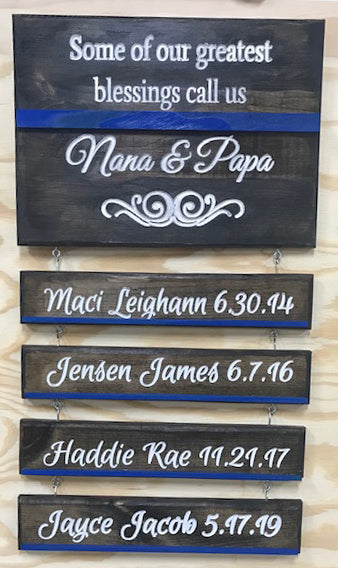 Some of our greatest
blessings call us
Nana & Papa
Maci Leighann 6.30.14
Jensen James 6.7.16
Haddie Rae 11.21.17
Jayce Jacob 5.17.19